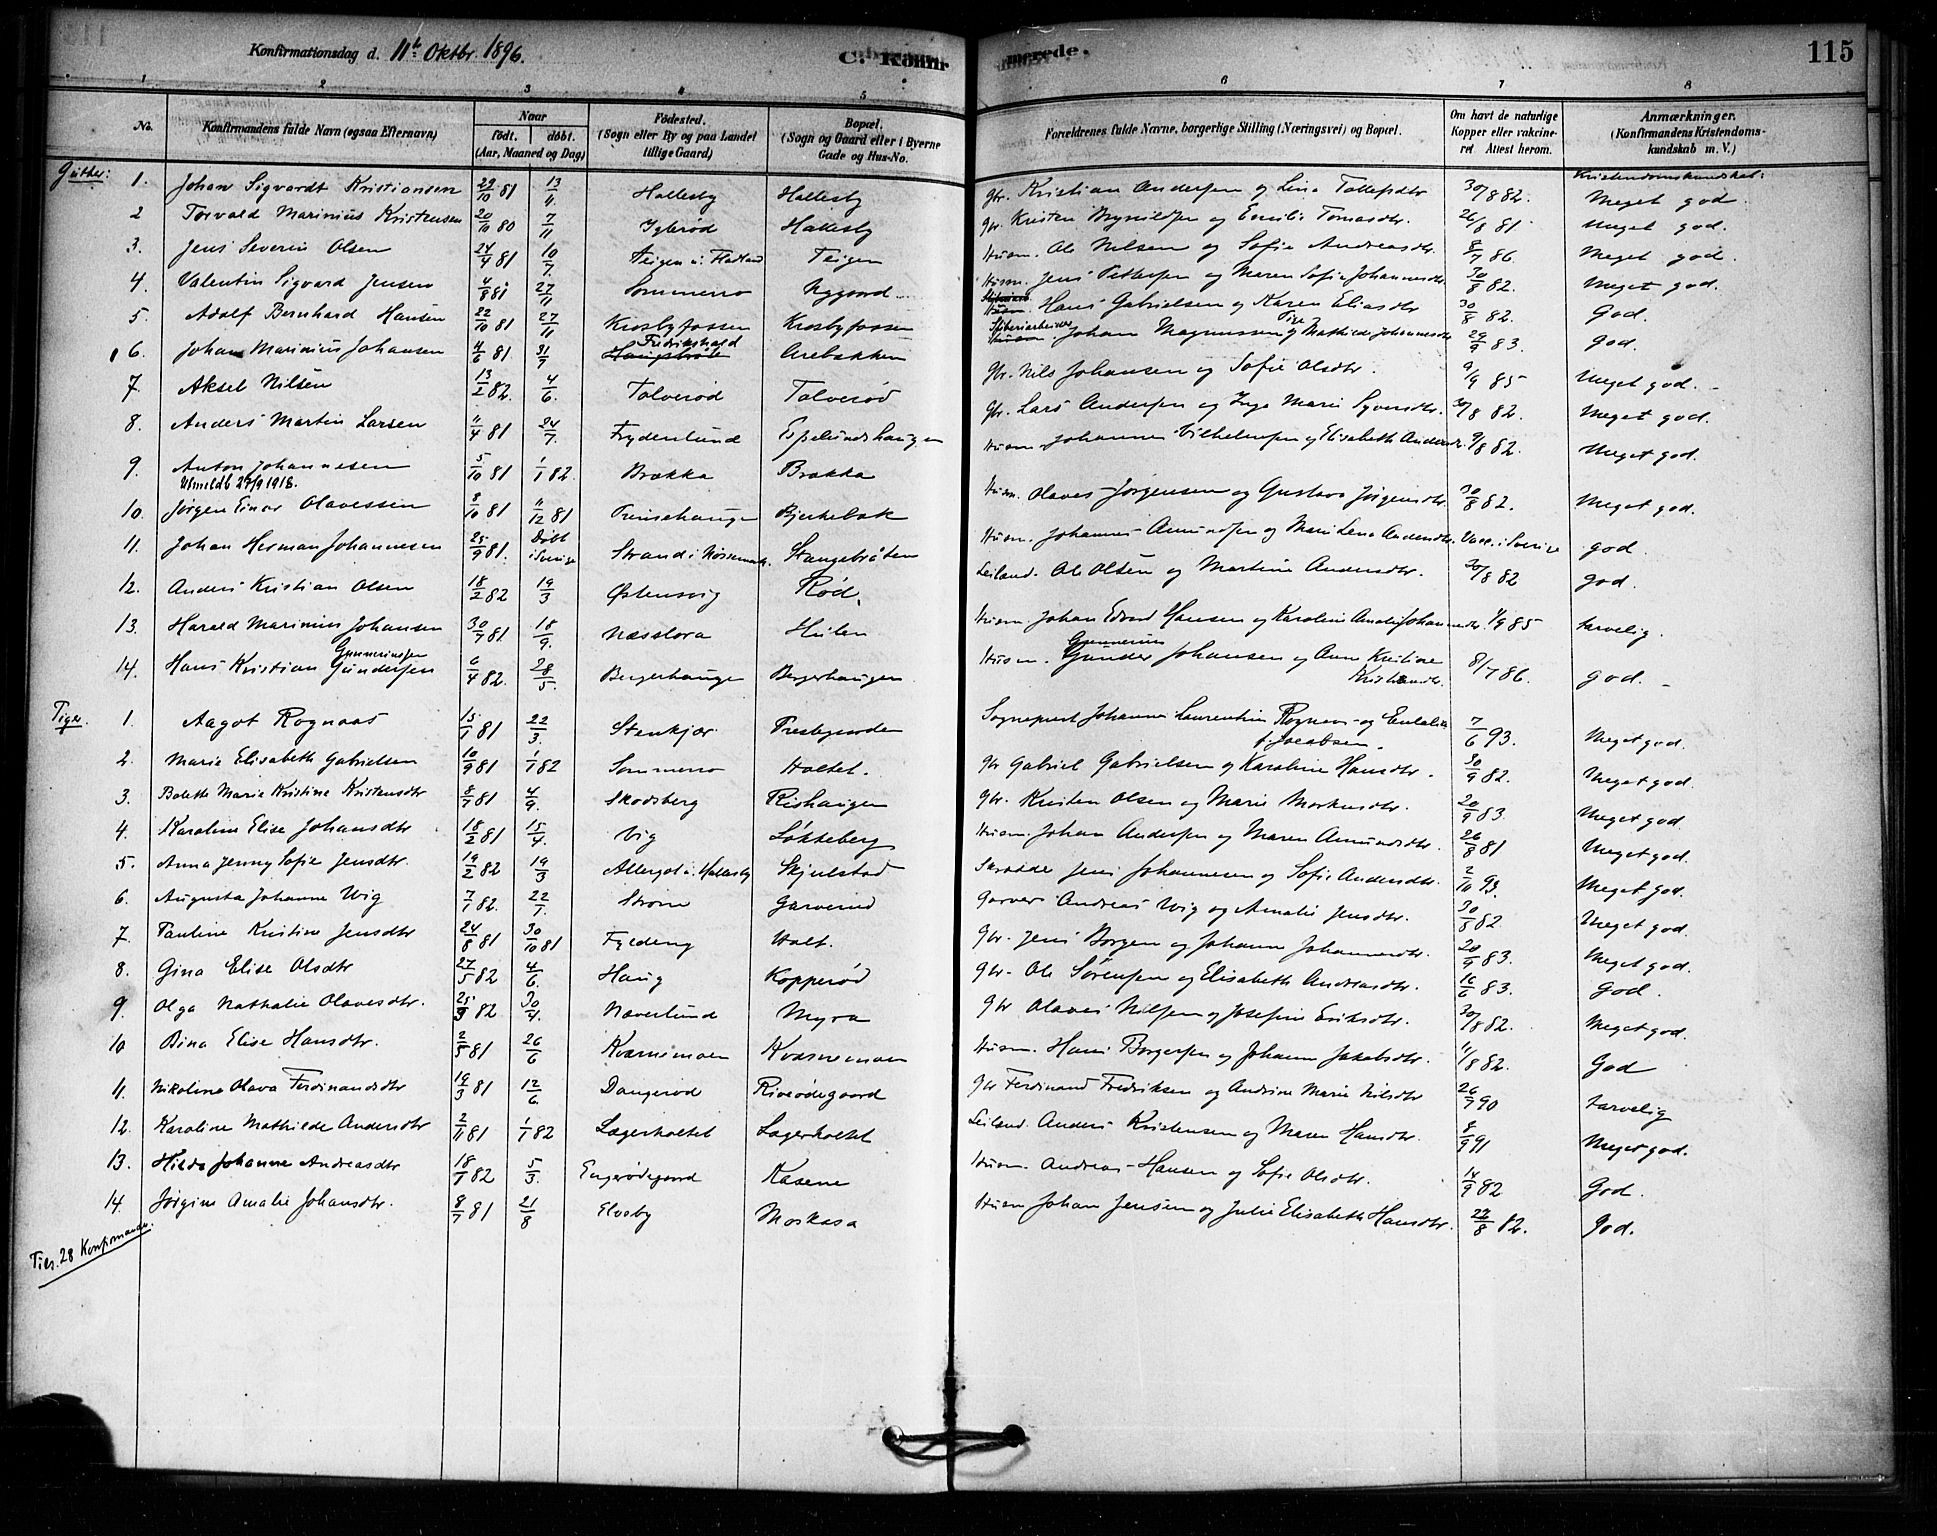 Konfirmationsdag d. 11te Oktbr. 1896.
C. Konfirmerede.
115
1 2 3 4 5 6 7 8
No. Konfirmandens fulde Navn (ogsaa Efternavn) Naar født. døbt. (Aar, Maaned og Dag) Fødested. (Sogn eller By og paa Landet tillige Gaard) Bopæl. (Sogn og Gaard eller i Byerne Gade og Hus-No. Forældrenes fulde Navne, borgerlige Stilling (Næringsvei) og Bopæl. Om havt de naturlige Kopper eller vakcineret Attest herom. Anmærkninger. (Konfirmandens Kristendomskundskab m. V.)
Gutter: Kristendomskundskab:
1. Johan Sigvardt Kristiansen 29/10 81 13/11 Hallesby Hallesby Gbr. Kristian Andersen og Lina Tollefsdtr 30/8 82. Meget god.
2 Torvald Marinius Kristensen 20/10 80 7/11 Igletød Hallesby Gbr. Kristen Brynildsen og Emilie Tomasdtr. 26/8 81 Meget god.
3. Jens Severin Olsen 24/4 81 10/7. Teigen u. Fladland Teigen Husm. Ole Nilsen og Sofie Andreasdtr. 8/7 86. Meget god.
4. Valentin Sigvard Jensen 4/8 81 27/11 Sommerro Nygaard Husm. Jens Pettersen og Maren Sofie Johannesdtr 30/8 82. Meget god.
5. Adolf Bernhard Hansen 22/10 81 27/11 Krosbyfossen Krosbyfossen Husm. Hans Gabrielsen og Karen Eliasdtr 30/8 82. God.
6. Johan Marinius Johansen 4/6 81 31/7 Fredrikshald Arebakken Johan Magnussen og Mathilde Johannesdtr 29/9 83. god.
7. Aksel Nilsen 13/2 82. 4/6. Tolverød Tolverød Gbr. Nils Johansen og Sofie Olsdtr. 9/9 85 Meget god.
8. Anders Martin Larsen 11/4 81 24/7. Frydenlund Espelundshaugen Gbr. Lars Andersen og Inge Marie Syversdtr. 30/8 82. Meget god.
9. Anton Johannesen 5/10 81 1/1 82. Brække Brække Husm. Johannes Vilhelmsen og Elisabeth Andersdtr. 9/8 82. Meget god.
Utmeldt 27/9 1918.
10. Jørgen Einar Olavessen 8/10 81 11/12 81 Trinsehaugen Bjerkebæk Husm. Olaves Jørgensen og Gustava Jørgensdtr. 30/8 82. Meget god.
11. Johan Herman Johannesen 25/9 81. Døbt i Sverige Strand i Nössemark. Stangebråten Husm. Johannes Amundsen og Mari Lena Andersdtr. Vacc. i Sverige god.
12. Anders Kristian Olsen 18/2 82 19/3 Østensvig Rød. Leiland. Ole Olsen og Martine Andersdtr. 30/8 82 god.
13. Harald Marinius Johansen 30/7 81 18/9. Næsslora Hulen Husm Johan Edvard Hansen og Karoline Andrea Johannesdtr. 1/9 85 tarvelig.
14. Hans Kristian Gundersen Gunneriussen 6/4 82. 28/5. Bergerhaugen Bergerhaugen Husm. Gunder Gunnerius Johansen og Anne Kristine Kristiansdtr. 8/7 86. god.
Piger.
1. Aagot Rognaas 15/1 81 22/3. Stenkjær Prestegaarden Sogneprest Johannes Laurentius Rognaas og Eulalia f. Jacobsen. 7/6 93. Meget god.
2. Marie Elisabeth Gabrielsen 10/9 81 1/1 82 Sommerro Holtet. Gbr Gabriel Gabrielsen og Karoline Hansdtr. 30/9 82. Meget god.
3. Bolette Marie Kristine Kristensdtr 8/7 81 4/9. Skodsberg Rishaugen Gbr. Kristen Olsen og Marie Markusdtr. 20/9 83. Meget god.
4. Karoline Elise Johansdtr 18/2 81 15/4. Vig Løkkeberg Husm. Johan Andersen og Maren Amundsdtr. 26/8 81 Meget god.
5. Anna Jenny Sofie Jensdtr. 19/2 82 19/3 Allergot u. Hallesby Skjulstad Skrædder Jens Johannesen og Sofie Andersdtr. 2/10 93. Meget god.
6. Augusta Johanne Wig 7/1 82. 22/7. Strøm Garverud Garver Andreas Wig og Amalie Jensdtr. 30/8 82. Meget god.
7. Pauline Kristine Jensdtr 24/8 81 30/10 81 Fyldeng Holt. Gbr. Jens Borgen og Johanne Johannesdtr. 20/9 83. Meget god.
8. Gina Elise Olsdtr 27/5 82 4/6. Haug Kopperød Gbr. Ole Sörensen og Elisabeth Andreasdtr. 16/6 83. God.
9. Olga Nathalie Olavesdtr. 25/3 82 30/4. Næverlund Myra Gbr Olaves Nilsen og Josefine Eriksdtr. 30/8 82. Meget god.
10 Bina Elise Hansdtr. 2/5 81 26/6 Kværnemoen Kværnemoen Husm. Hans Borgersen og Johanne Jakobsdtr. 11/8 82. God
11. Nikoline Olava Ferdinandsdtr 19/3 81 12/6 Dangerød Rivrødegaard Gbr Ferdinand Fredriksen og Andrine Marie Nilsdtr 26/7 90 tarvelig
12. Karoline Mathilde Andersdtr 2/11 81 1/1 82 Lagerholtet Lagerholtet Leiland. Anders Kristensen og Maren Hansdtr. 8/9 91 Meget god.
13. Hilda Johanne Andreasdtr 18/1 82 5/3. Engerødegaard Kasene Husm. Andreas Hansen og Sofie Olsdtr. 14/9 82 God.
14. Jørgine Amalie Johansdtr. 8/7 81 21/8 Elvesby Moskasa Husm Johan Jensen og Julie Elisabeth Hansdtr. 22/8 82. God.
Tils. 28 Konfirmander.